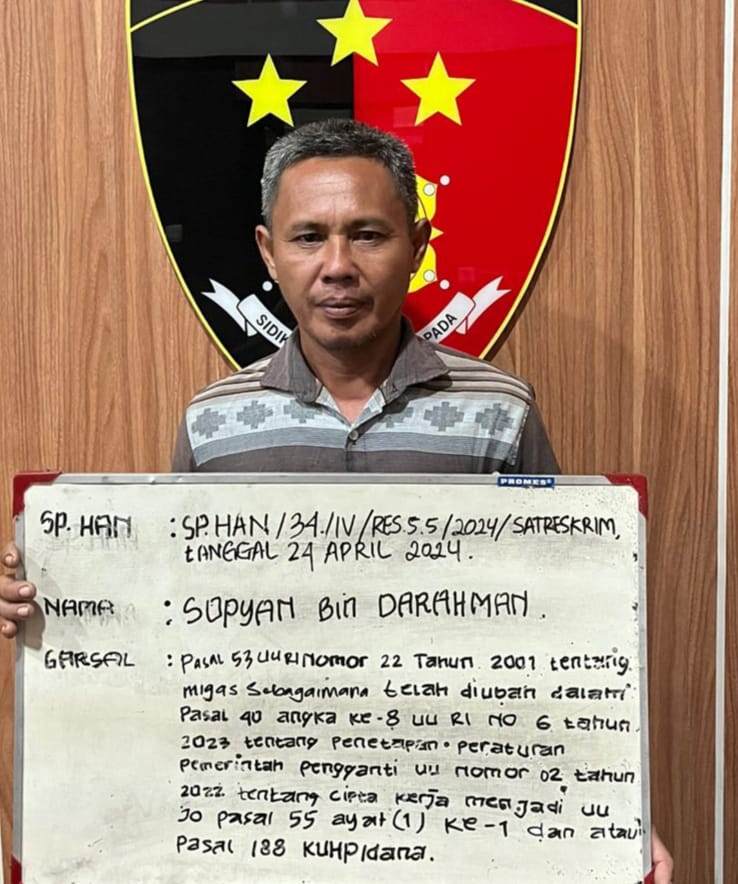 SIDIK
PADA
PROMES
SP. HAN : SP.HAN/34./IV/RES.5.5/2024/SATRESKRIM,
tANGGAL 24 APRIL 2024.
NAMA : SOPYAN Bin DARAHMAN.
GARSAL : Pasal 53 UU RI Nomor 22 Tahun 2001 tentang
migas Sebagaimana telah diubah dalam
Pasal 40 angka ke-8 UU RI NO 6 tahun
2023 tentang Penetapan peraturan
Pemerintah pengganti UU nomor 02 tahun
2022 tentang cipta kerja menjadi UU
JO pasal 55 ayat (1) Ke-1 dan atau
Pasal 188 KUHPidana.